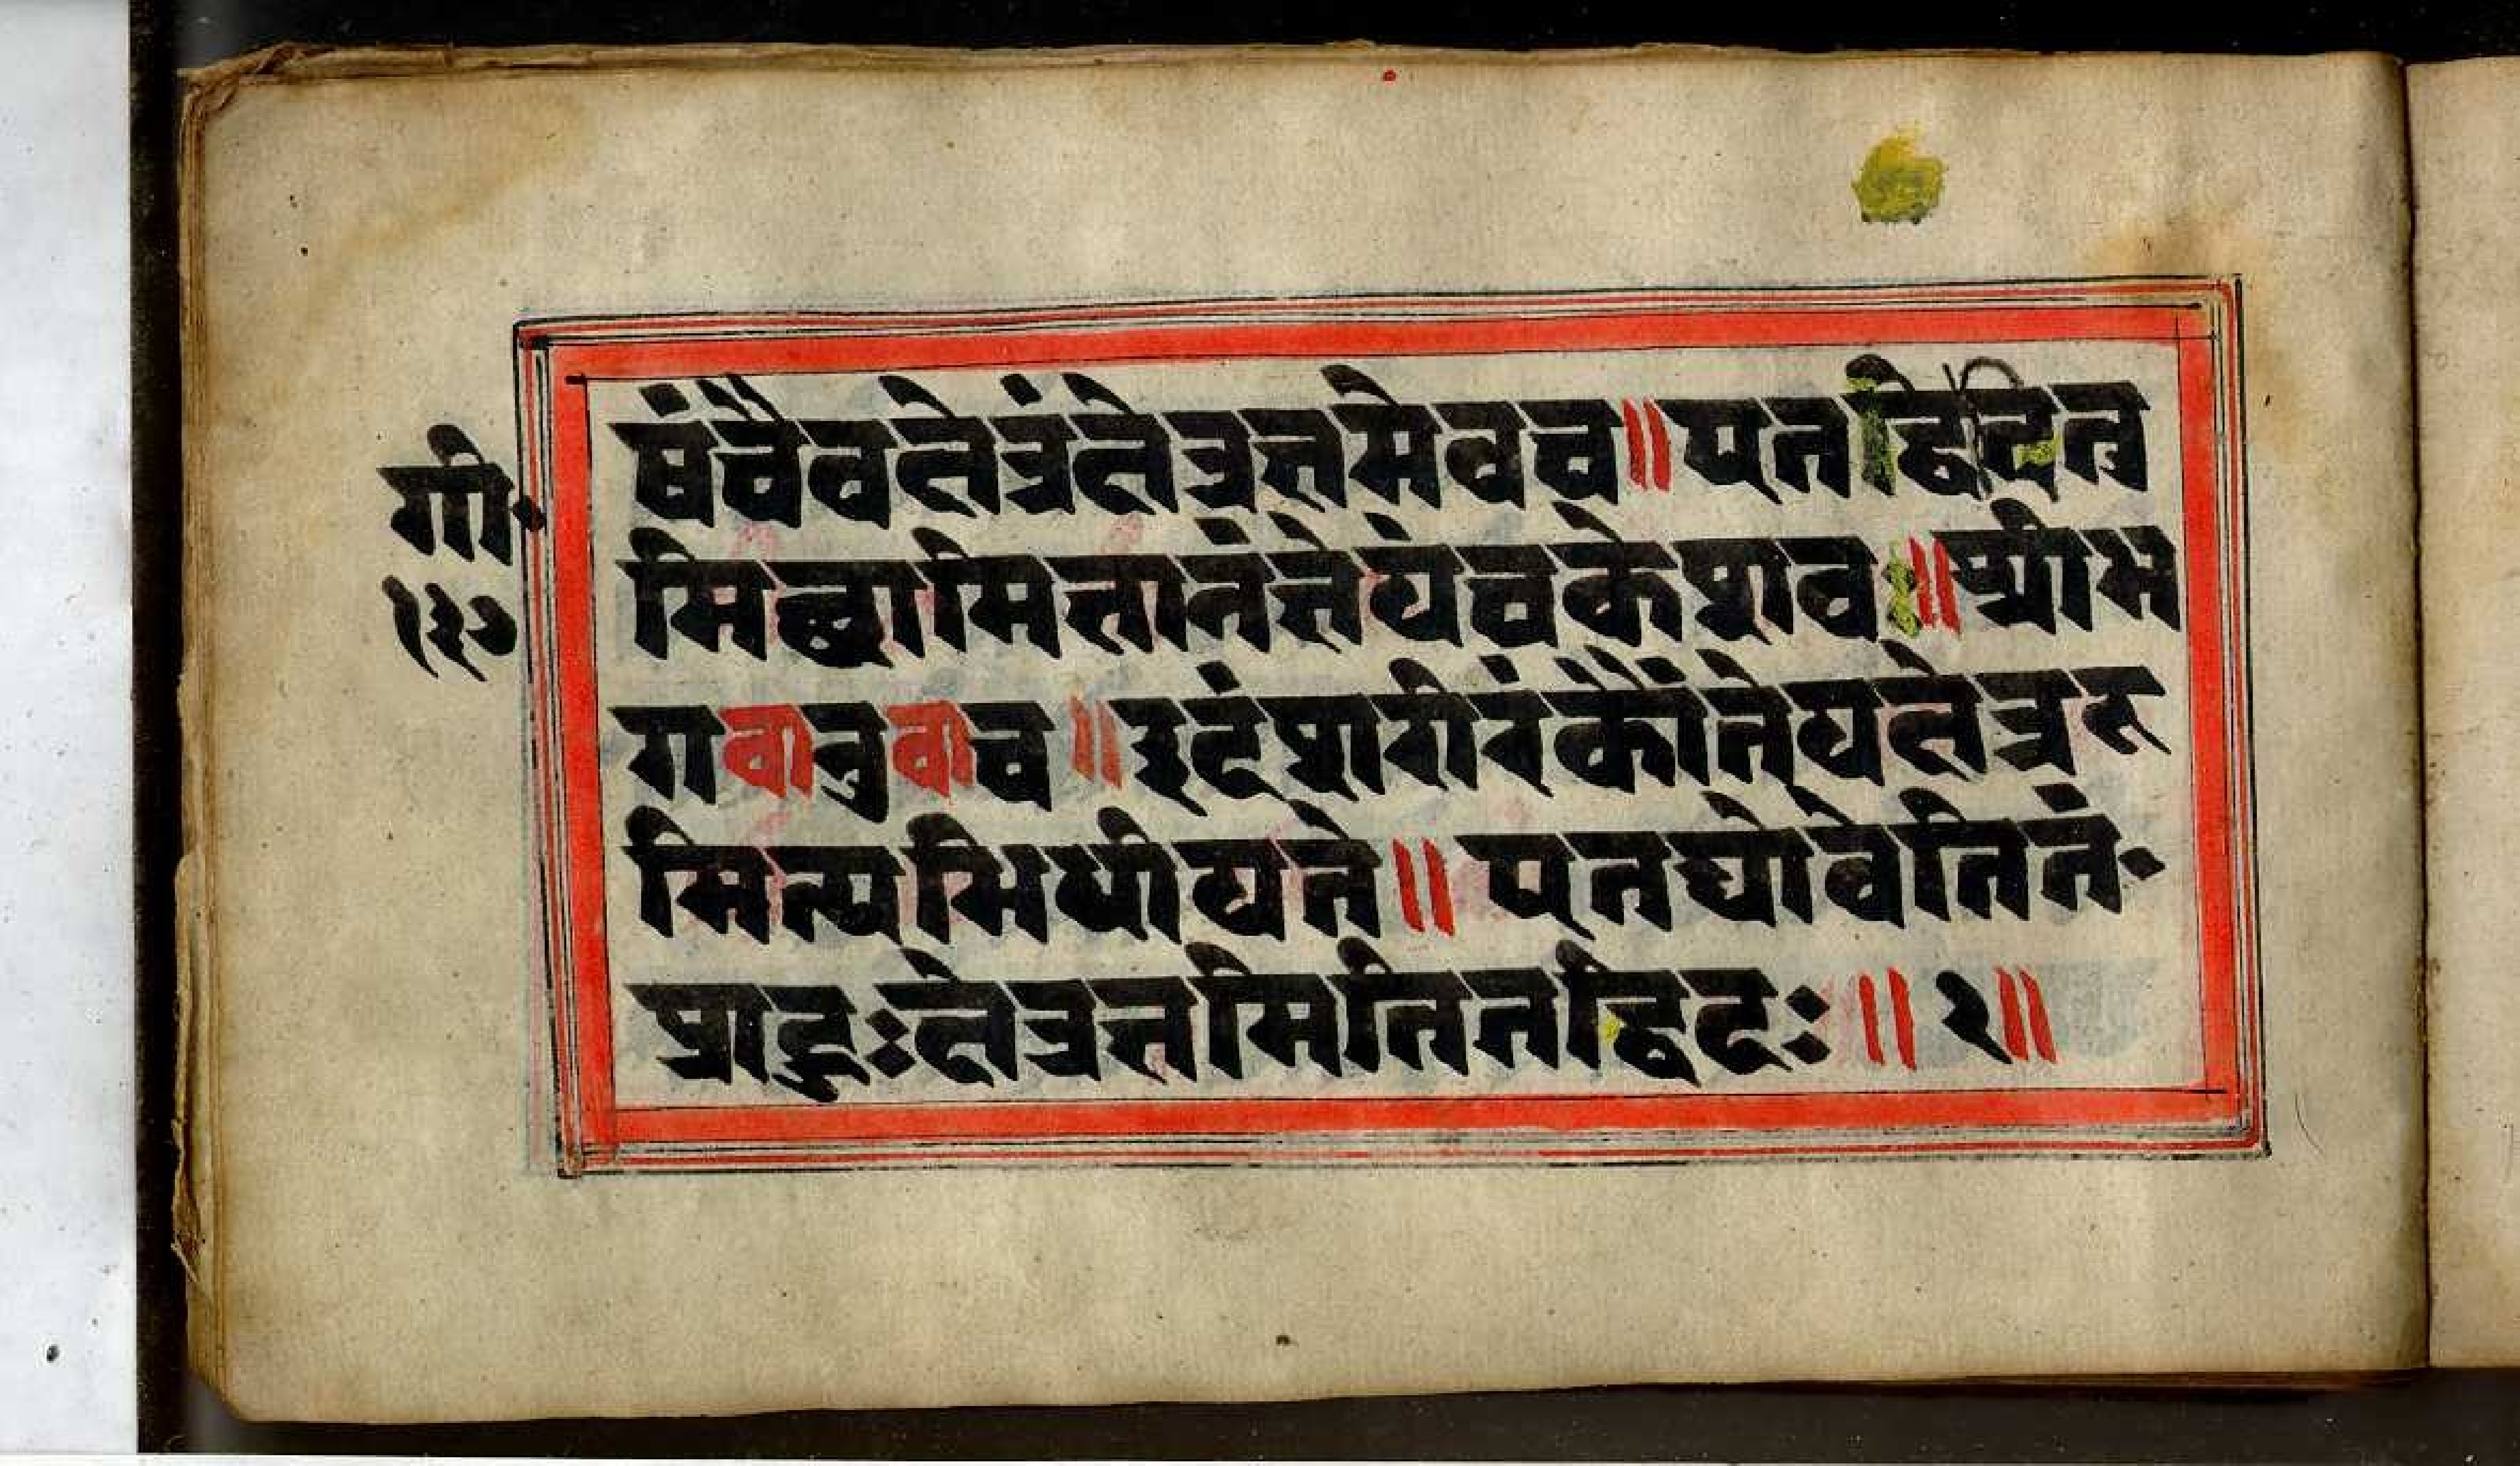 षंचैवक्षेत्रंक्षेत्रज्ञमेवच॥एतद्वेदितु
मिच्छामिज्ञानंज्ञेयंचकेशव॥श्रीभ
गी॰
१३७
गवानुवाच॥इदंशरीरंकौंतेयक्षेत्र
मित्यभिधीयते॥एतद्योवेत्तितं॰
प्राहुःक्षेत्रज्ञमितितद्विदः॥२॥